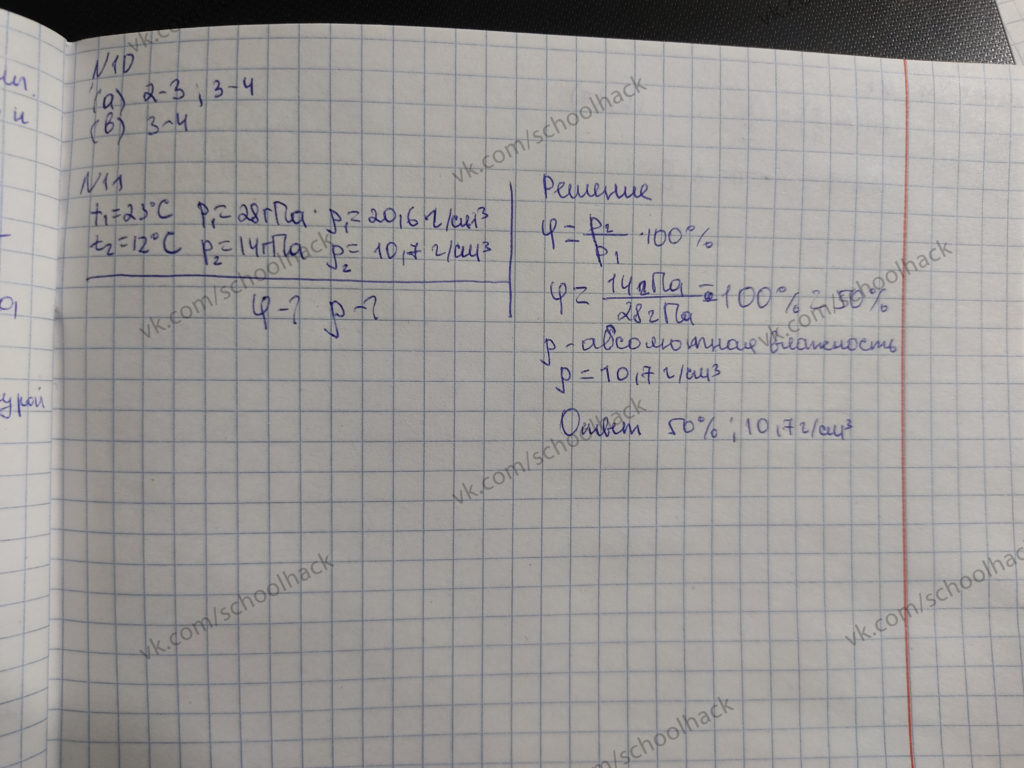 N10
(а) 2-3 ; 3-4
(в) 3-4
N11
t₁=23°C P₁=28гПа ρ₁=20,6 г/см³
t₂=12°C P₂=14гПа ρ₂= 10,7 г/см³
φ-? ρ-?
Решение
φ= P₂/P₁ ·100%
φ= 14гПа/28гПа · 100% = 50%
ρ - абсолютная влажность
ρ=10,7 г/см³
Ответ 50% ; 10,7 г/см³
и
урой
vk.com/schoolhack
vk.com/schoolhack
vk.com/schoolhack
vk.com/schoolhack
vk.com/schoolhack
vk.com/schoolhack
vk.com/schoolhack